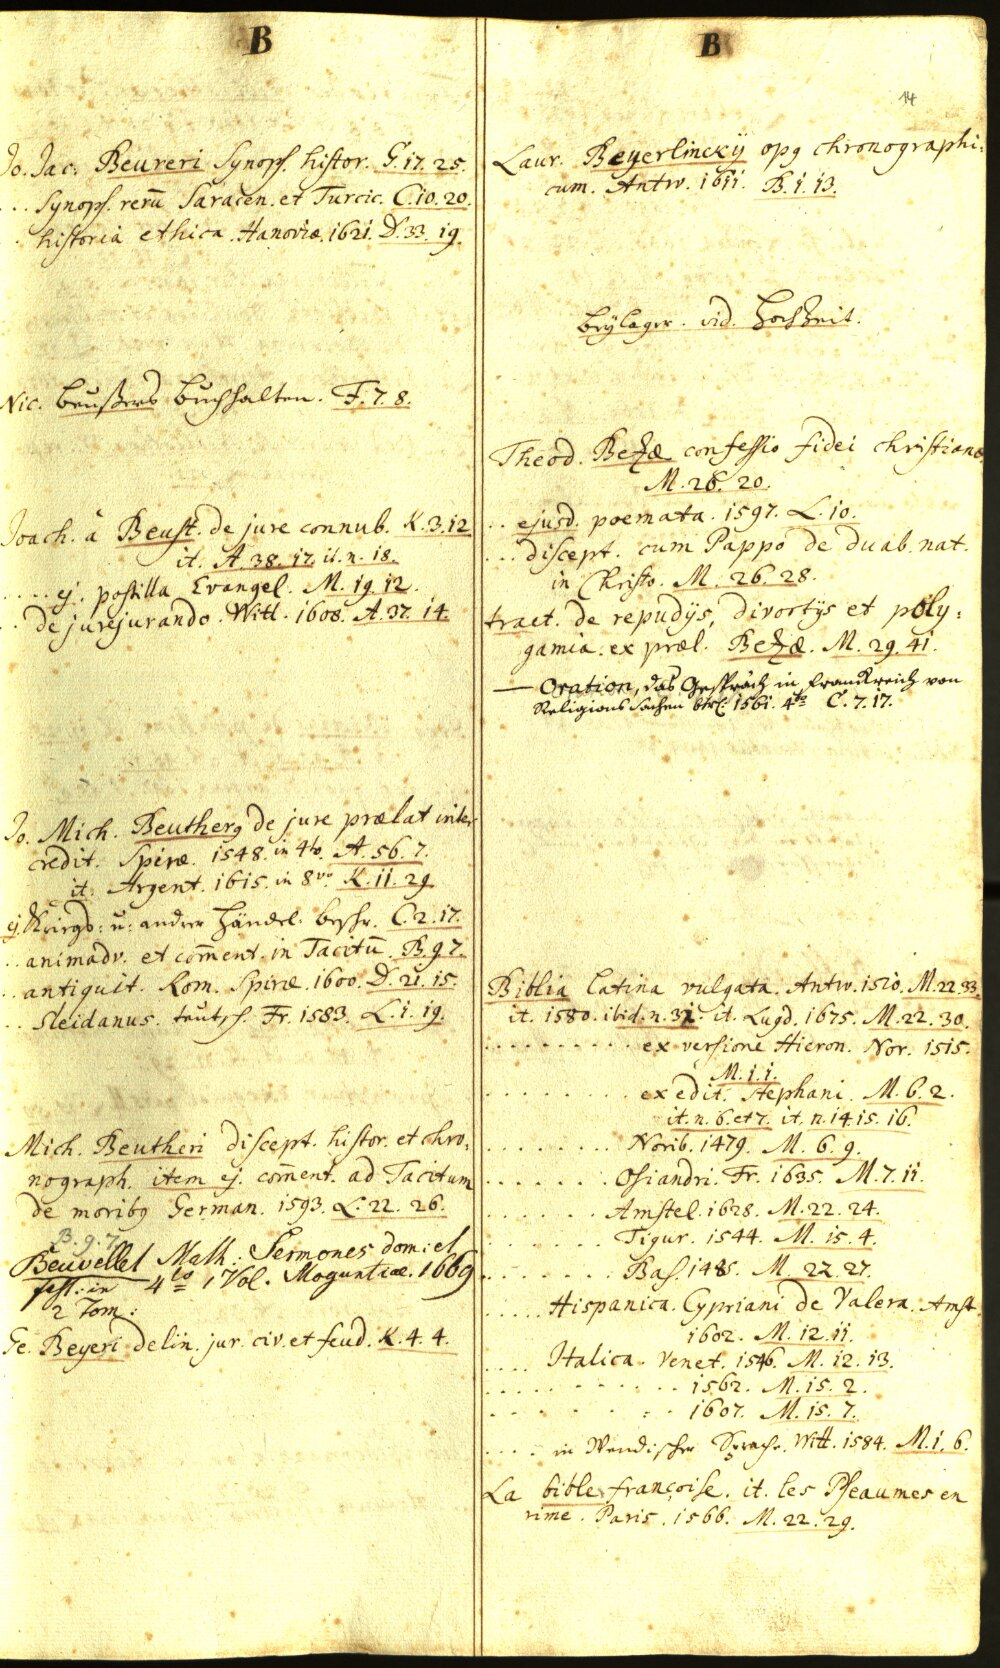 B
Jo. Jac. Beureri Synops. histor. G. 17. 25.
.. Synops. rerū Saracen. et Turcic. C. 10. 20.
. historia ethica. Hanoviæ. 1621. D. 33. 19.
Nic. Beußers Buchhalten. F. 7. 8.
Joach. à Beust. de jure connub. K. 3. 12
it. A. 38. 17. it. n. 18.
.... ej. postilla Evangel. M. 19. 12.
. de jurejurando. Witt. 1608. A. 37. 14.
Jo. Mich. Beutherg de jure prælat inter
credit. Spiræ. 1548. in 4to. A. 56. 7.
it. Argent. 1615. in 8vo. K. 11. 29.
ej. Kriegs- u. andrer Händel. beschr. C. 2. 17.
.. animadv. et com̄ent. in Tacitū. B. 9. 7.
.. antiquit. Rom. Spiræ. 1600. D. 21. 15.
.. Sleidanus. teutsch. Fr. 1583. L. 1. 19.
Mich. Beutheri discept. histor. et chro-
nograph. item ej. com̄ent. ad Tacitum
de moribg German. 1593. L. 22. 26.
B. 9. 7.
Beuvellet Math: Sermones dom: et
fest: in 4to 1 Vol. Moguntiae. 1669
2 Tom:
Ge. Beyeri delin. jur. civ. et feud. K. 4. 4.
B
14
Laur. Beyerlinckij opg chronographi-
cum. Antw. 1611. B. 1. 13.
Beylager. vid. Hochzeit.
Theod. Bezæ confessio fidei christianæ
M. 26. 20.
.. ejusd. poemata. 1597. L. 10.
... discept. cum Pappo de duab. nat.
in Christo. M. 26. 28.
tract. de repudijs, divortijs et poly-
gamia. ex præl. Bezæ. M. 29. 41.
— Oration, das Gespräch in Franckreich von
Religions Sachen btrl: 1561. 4to C. 7. 17.
Biblia latina vulgata. Antw. 1510. M. 22. 33.
it. 1580. ibid. n. 32. it. Lugd. 1675. M. 22. 30.
......... ex versione Hieron. Nor. 1515.
M. 1. 1.
......... ex edit. Stephani. M. 6. 2.
it. n. 6. et 7. it. n. 14. 15. 16.
........ Norib. 1479. M. 6. 9.
....... Osiandri. Fr. 1635. M. 7. 11.
....... Amstel. 1628. M. 22. 24.
........ Tigur. 1544. M. 15. 4.
........ Bas. 1485. M. 22. 27.
.... Hispanica. Cypriani de Valera. Amst.
1602. M. 12. 11.
.... Italica. Venet. 1546. M. 12. 13.
.......... 1562. M. 15. 2.
.......... 1607. M. 15. 7.
.... in Wendischer Sprache. Witt. 1584. M. 1. 6.
La bible françoise. it. les Pseaumes en
rime. Paris. 1566. M. 22. 29.